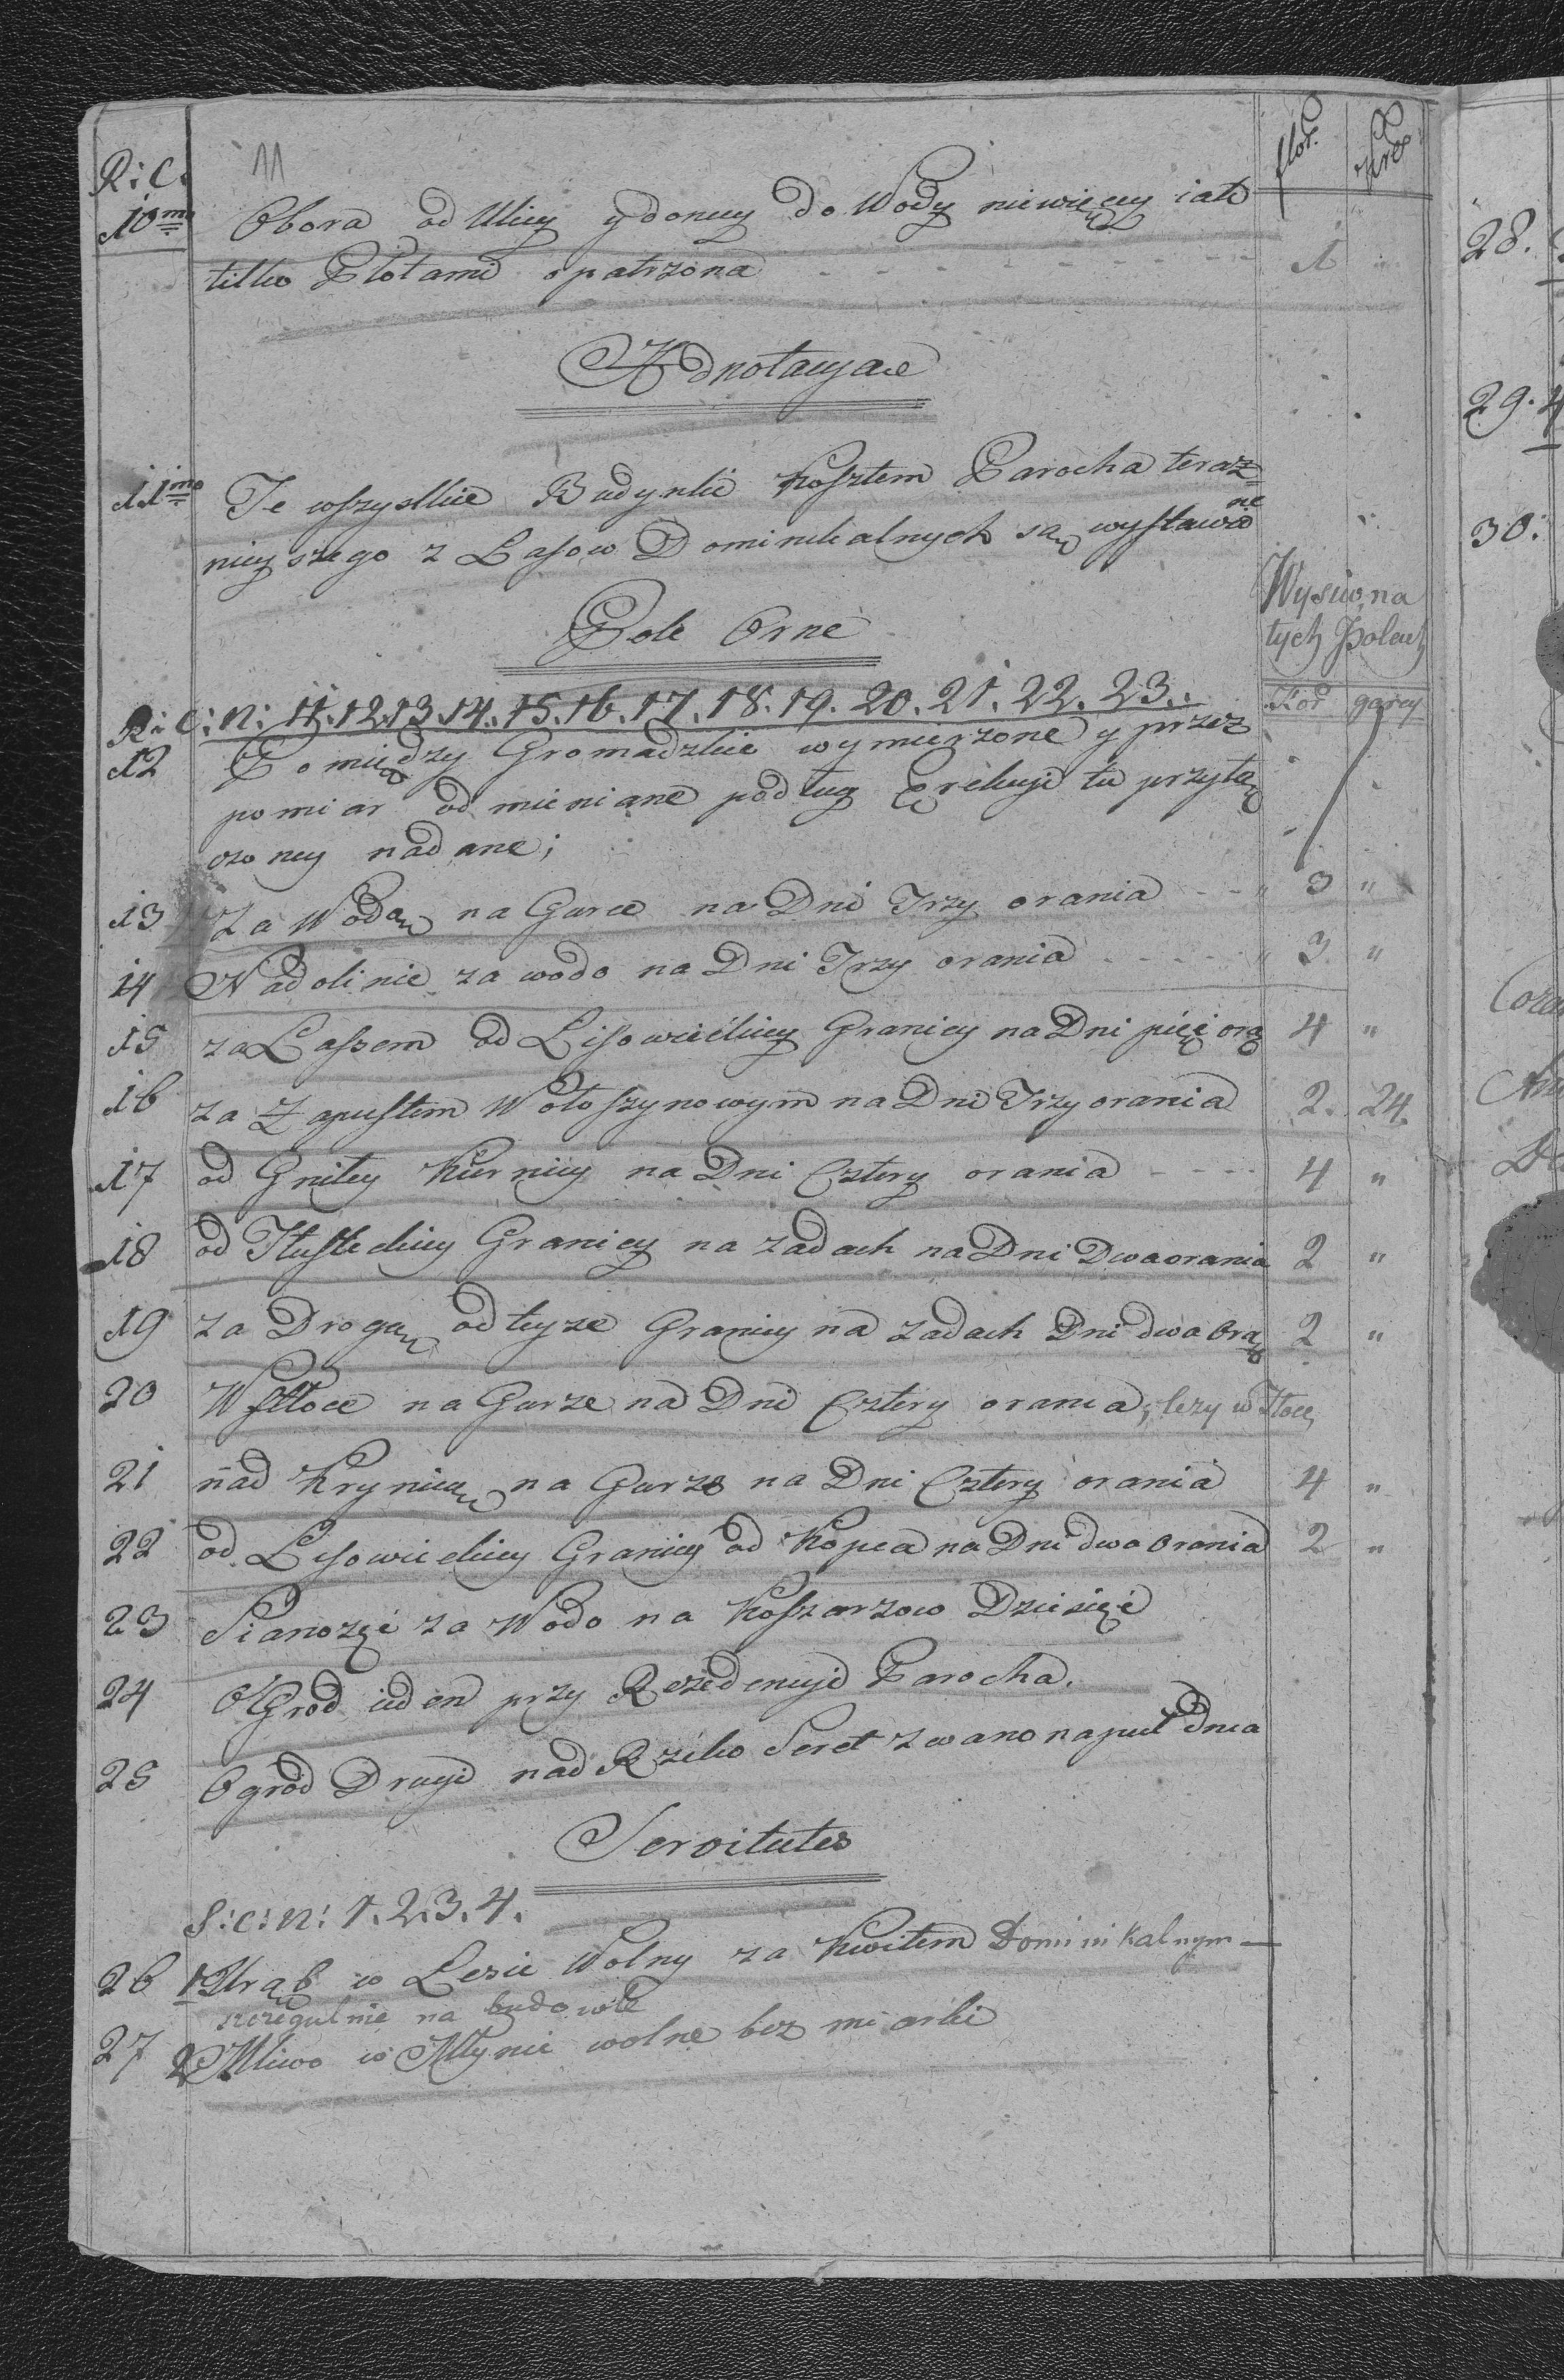 R: C.
11
flor. Krec
10mo Obora od Ulicy y doncy do Wody niewięcy iak
tilko Płotami opatrzona - - - - - - - - - 1 "
Adnotacyae
11mo Te wszystkie Budynki Kosztem Parocha teraz=
nieyszego z Lasow Dominikalnych są wystawio
ne
Pole Orne
Wysiw na
tych Polach
Kor garcy
R: C: N: 11.12.13.14.15.16.17.18.19.20.21.22.23.
12 Pomiędzy Gromadzkie wymierzone y przez
pomiar odmieniane podług Erekcyi tu przyłą
czoney nadane;
13 Za Wodą na Gurce na Dni Trzy orania - - " 3 "
14 Nadolinie za wodo na Dni Trzy orania - - - - - " 3 "
15 za Lassem od Lisowieckiey Granicy na Dni pięć orą 4 "
16 za Zapustem Wołoszynowym na Dni Trzy orania 2. 24.
17 od Gniłey Kiernicy na Dni Cztery orania - - - - 4 "
18 od Tłusteckiey Granicy na zadach na Dni Dwa orania 2 "
19 za Drogą od teyze Granicy na zadach Dni dwa Orą 2 "
20 W Tłoce na Gurze na Dni Cztery orania, lezy w Tłoce,
21 nad Krynicą na Gurze na Dni Cztery orania 4 "
22 od Lysowieckiey Granicy od Kopca na Dni dwa Orania 2 "
23 Sianozęć za Wodo na Koszarzow Dziesięć
24 OGrod ieden przy Rezedencyi Parocha.
25 Ogrod Drugi nad Rzeko Seret zwano napuł Dnia
Servitutes
S: C: N: 1.2.3.4.
26 1 Wrąb w Lesie Wolny za Kwitem Dominikalnym —
szczegulnie na budowle
27 2 Mliwo w Młynie wolne bez miarki
28.
29. 4
30.